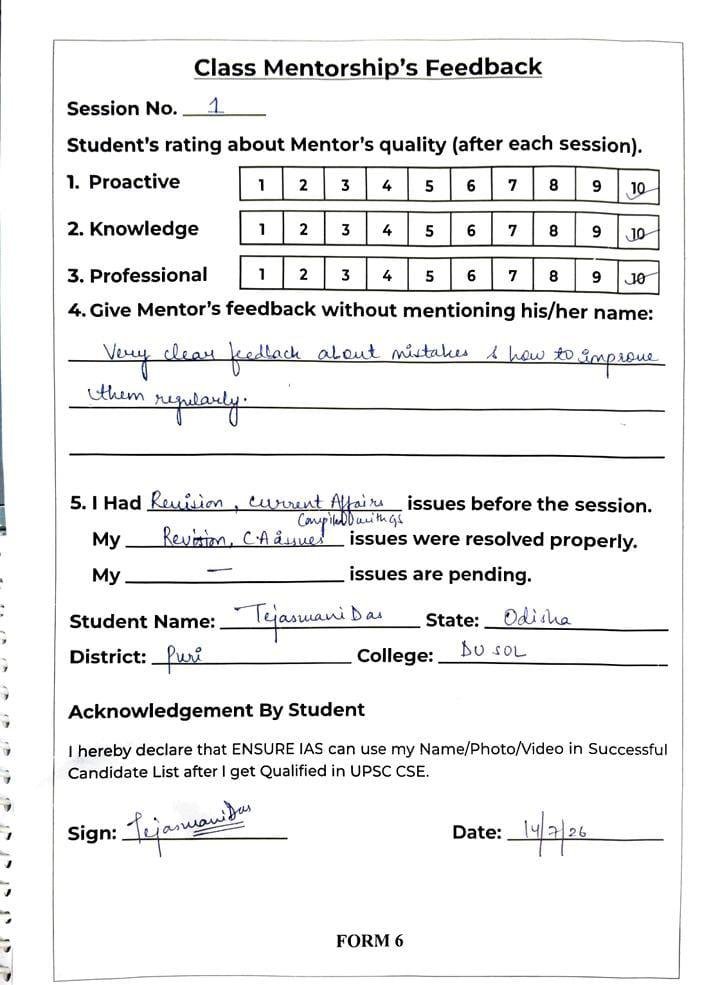 Class Mentorship's Feedback
Session No. 1
Student's rating about Mentor's quality (after each session).
1. Proactive 1 2 3 4 5 6 7 8 9 10
2. Knowledge 1 2 3 4 5 6 7 8 9 10
3. Professional 1 2 3 4 5 6 7 8 9 10
4. Give Mentor's feedback without mentioning his/her name:
Very clear feedback about mistakes & how to improve
them regularly.
5. I Had Revision, current Affairs issues before the session.
Compiled with GS
My Revision, C.A issues issues were resolved properly.
My — issues are pending.
Student Name: Tejaswani Das State: Odisha
District: Puri College: DU SOL
Acknowledgement By Student
I hereby declare that ENSURE IAS can use my Name/Photo/Video in Successful
Candidate List after I get Qualified in UPSC CSE.
Sign: Tejaswani Das Date: 14/7/26
FORM 6